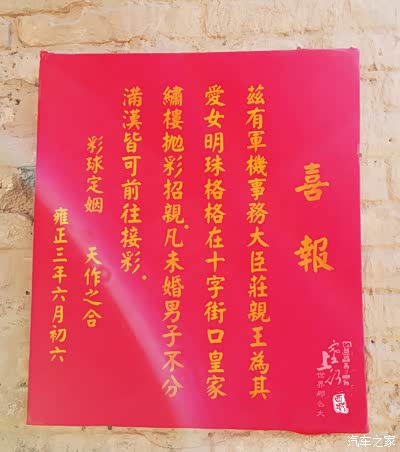 喜報
茲有軍機事務大臣莊親王為其
愛女明珠格格在十字街口皇家
繡樓拋彩招親。凡未婚男子不分
滿漢皆可前往接彩。
彩球定姻 天作之合
雍正三年六月初六
世界那么大
汽车之家